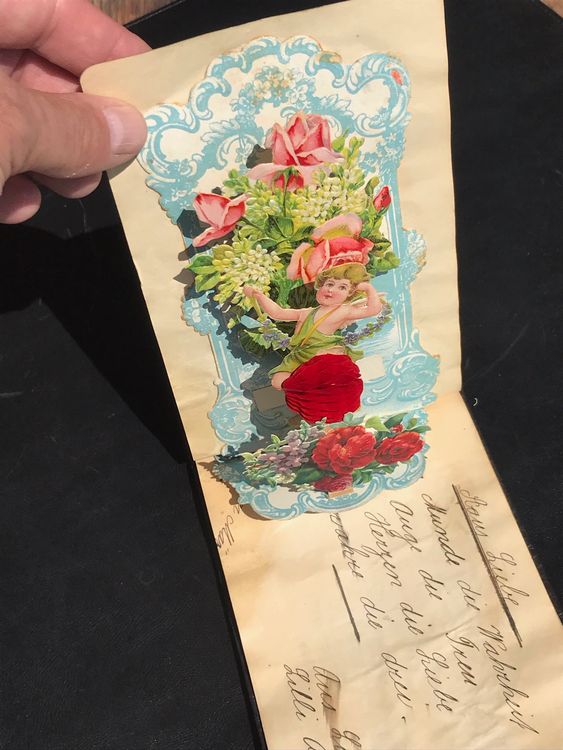 Aus Liebe
Munde die Wahrheit
Auge die Treu
Herzen die Liebe
wahre die drei.
Aus
Lilli